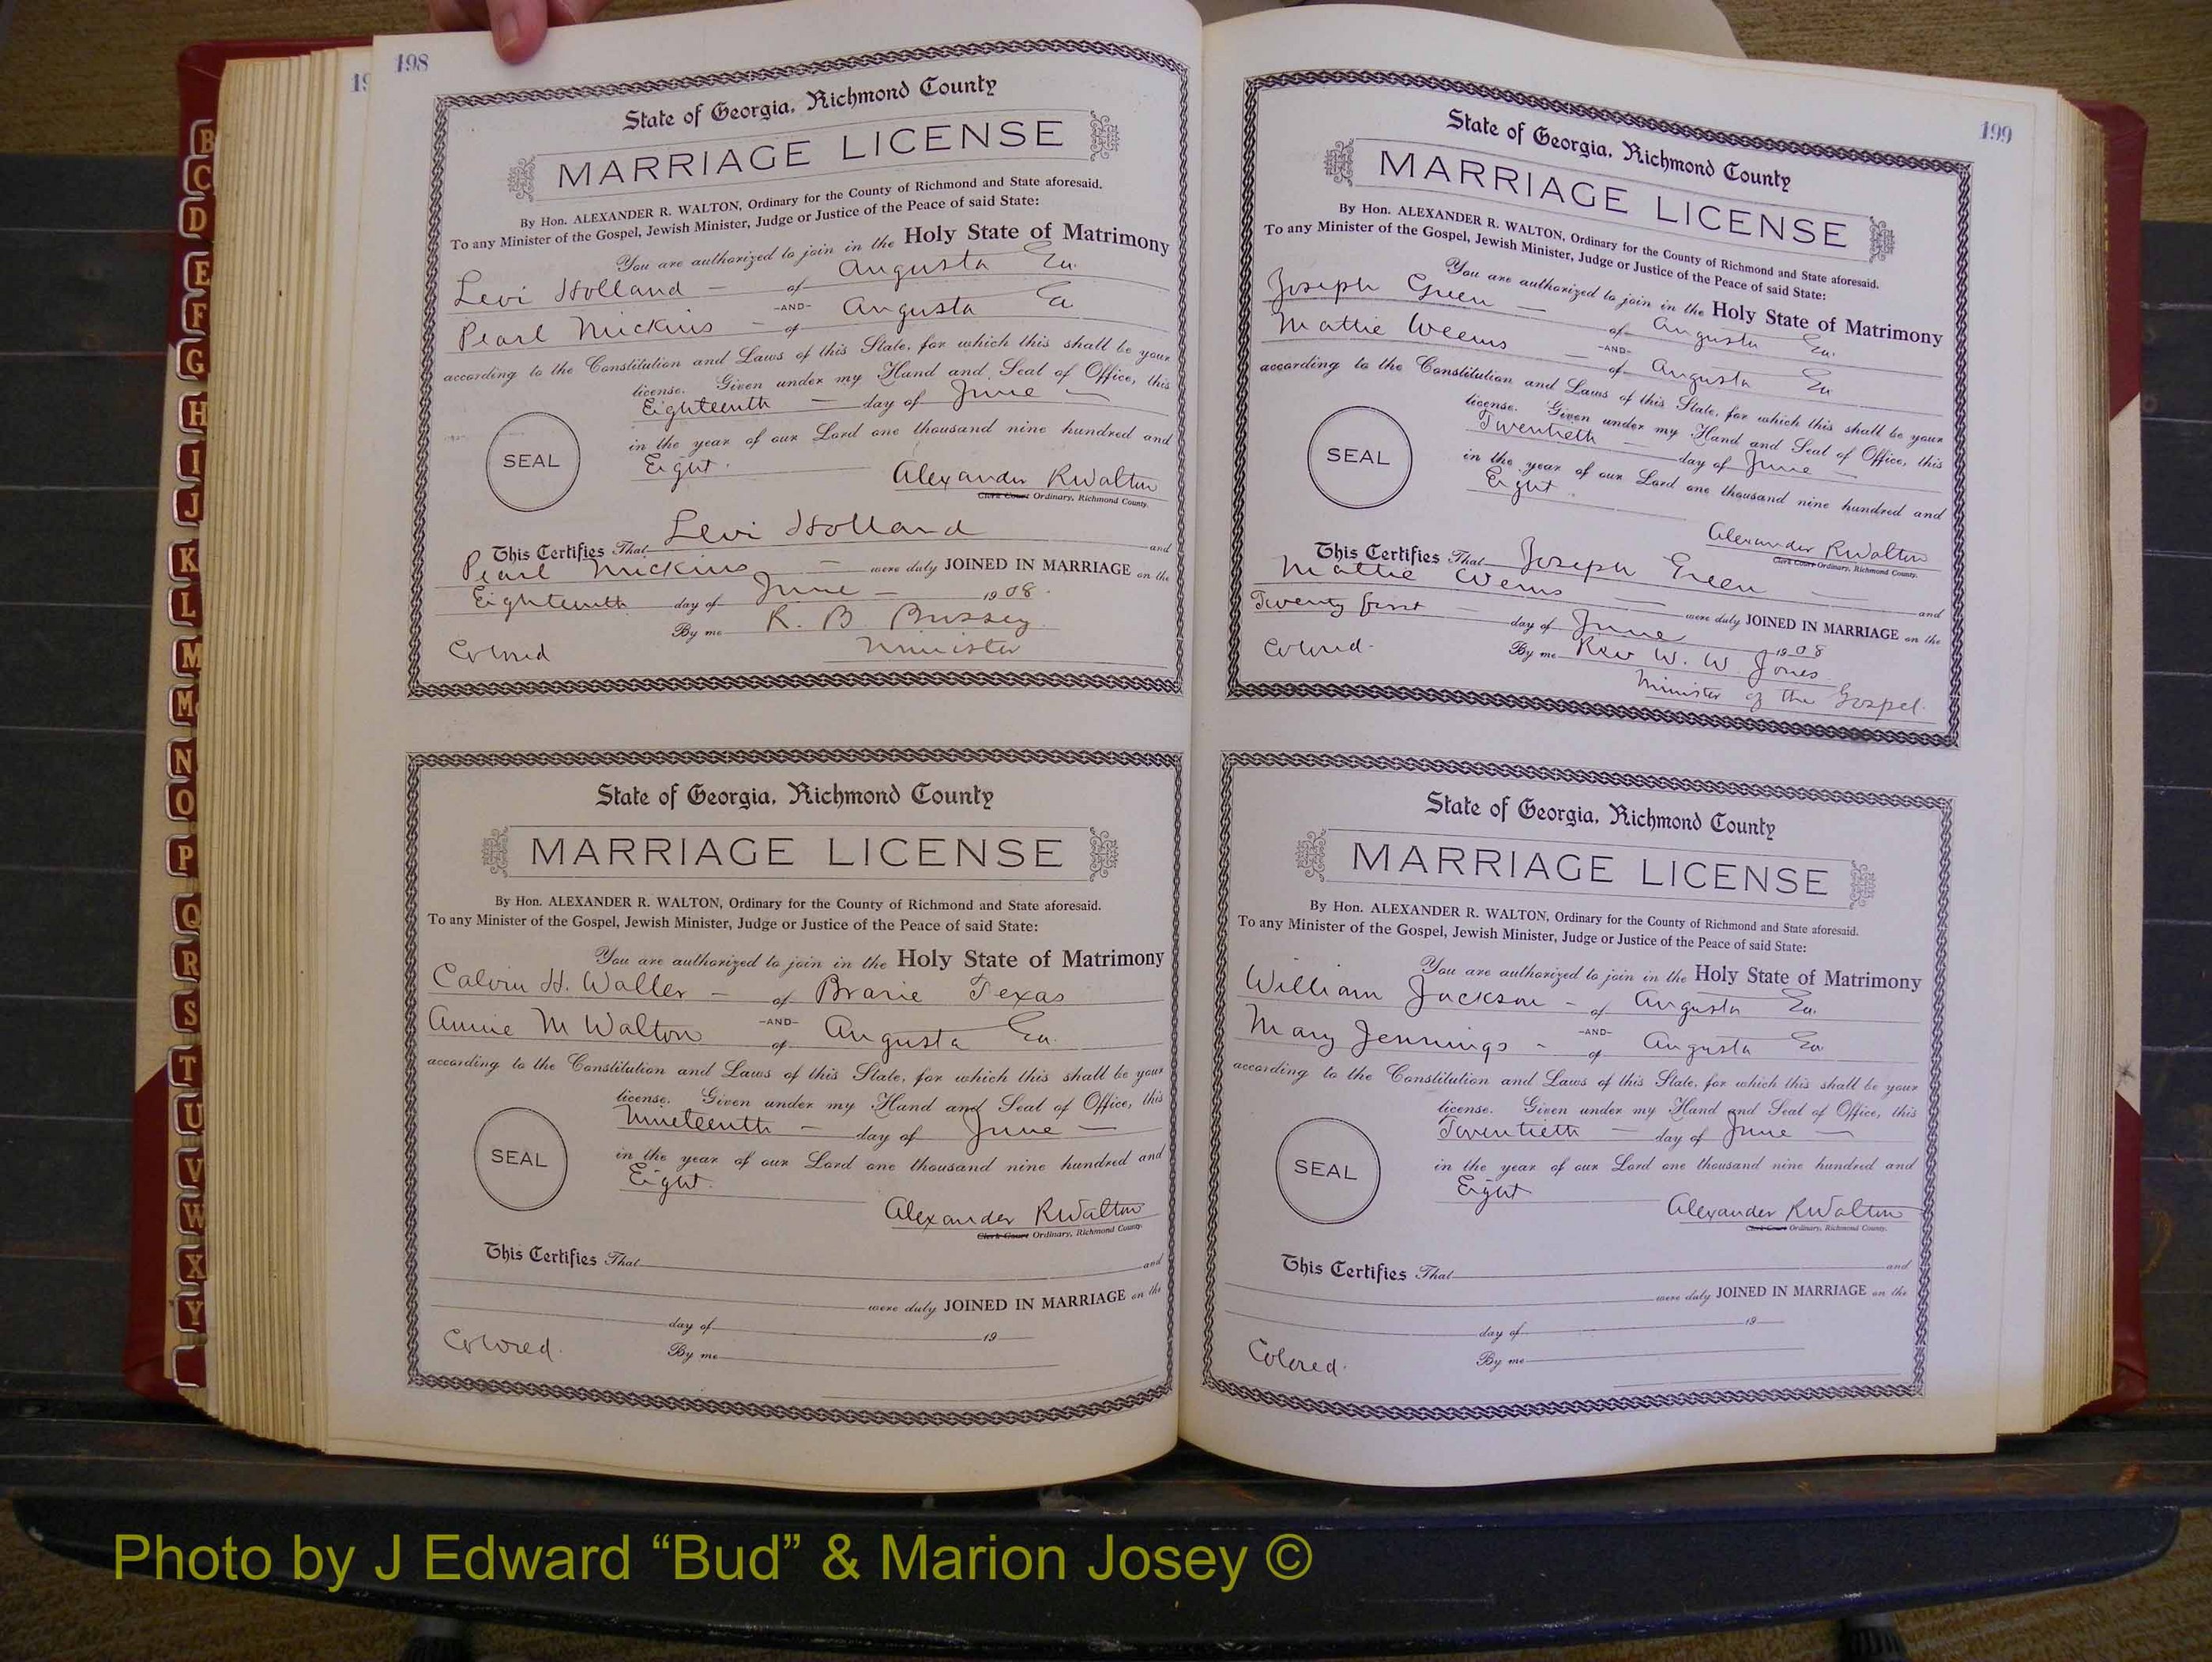 198
State of Georgia, Richmond County
MARRIAGE LICENSE
By Hon. ALEXANDER R. WALTON, Ordinary for the County of Richmond and State aforesaid.
To any Minister of the Gospel, Jewish Minister, Judge or Justice of the Peace of said State:
You are authorized to join in the Holy State of Matrimony
Levi Holland — of Augusta Ga.
-AND-
Pearl Mickins — of Augusta Ga
according to the Constitution and Laws of this State, for which this shall be your
license. Given under my Hand and Seal of Office, this
Eighteenth — day of June —
SEAL
in the year of our Lord one thousand nine hundred and
Eight.
Alexander R Walton
Clerk Court Ordinary, Richmond County.
This Certifies That Levi Holland and
Pearl Mickins — were duly JOINED IN MARRIAGE on the
Eighteenth day of June — 1908.
By me R. B. Bussey
Colored Minister
State of Georgia, Richmond County
MARRIAGE LICENSE
By Hon. ALEXANDER R. WALTON, Ordinary for the County of Richmond and State aforesaid.
To any Minister of the Gospel, Jewish Minister, Judge or Justice of the Peace of said State:
You are authorized to join in the Holy State of Matrimony
Calvin H. Waller — of Prarie Texas
-AND-
Annie M Walton of Augusta Ga.
according to the Constitution and Laws of this State, for which this shall be your
license. Given under my Hand and Seal of Office, this
Nineteenth — day of June —
SEAL
in the year of our Lord one thousand nine hundred and
Eight.
Alexander R Walton
Clerk Court Ordinary, Richmond County.
This Certifies That and
were duly JOINED IN MARRIAGE on the
day of 19
Colored. By me
199
State of Georgia, Richmond County
MARRIAGE LICENSE
By Hon. ALEXANDER R. WALTON, Ordinary for the County of Richmond and State aforesaid.
To any Minister of the Gospel, Jewish Minister, Judge or Justice of the Peace of said State:
You are authorized to join in the Holy State of Matrimony
Joseph Green — of Augusta Ga.
-AND-
Mattie Weems — of Augusta Ga
according to the Constitution and Laws of this State, for which this shall be your
license. Given under my Hand and Seal of Office, this
Twentieth — day of June —
SEAL
in the year of our Lord one thousand nine hundred and
Eight.
Alexander R Walton
Clerk Court Ordinary, Richmond County.
This Certifies That Joseph Green — and
Mattie Wems — were duly JOINED IN MARRIAGE on the
Twenty first — day of June 1908
Colored. By me Rev W. W. Jones.
Minister of the Gospel.
State of Georgia, Richmond County
MARRIAGE LICENSE
By Hon. ALEXANDER R. WALTON, Ordinary for the County of Richmond and State aforesaid.
To any Minister of the Gospel, Jewish Minister, Judge or Justice of the Peace of said State:
You are authorized to join in the Holy State of Matrimony
William Jackson — of Augusta Ga.
-AND-
Mary Jennings — of Augusta Ga
according to the Constitution and Laws of this State, for which this shall be your
license. Given under my Hand and Seal of Office, this
Twentieth — day of June —
SEAL
in the year of our Lord one thousand nine hundred and
Eight
Alexander R Walton
Clerk Court Ordinary, Richmond County.
This Certifies That and
were duly JOINED IN MARRIAGE on the
day of 19
Colored. By me
19
B
C
D
E
F
G
H
I
J
K
L
M
Mc
N
O
P
Q
R
S
T
U
V
W
X
Y
Photo by J Edward “Bud” & Marion Josey ©